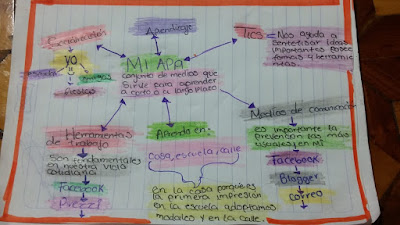 Generación
YO
Amigos
Aprendizaje
MI APA
conjunto de medios que
sirve para aprender
a corto o a largo plazo
TICS = Nos ayuda a
sintetizar ideas
importantes posee
formas y herramie
ntas.
Herramientas
de trabajo
son fundamentales
en nuestra vida
cotidiana
Facebook
Prezzi
Aprendo en:
Casa, escuela, calle
en la casa porque es
la primera impresión
en la escuela adoptamos
modales y en la calle.
Medios de comunicación
es importante la
prevencion las mas
usuales en mi
Facebook
Blogger
correo